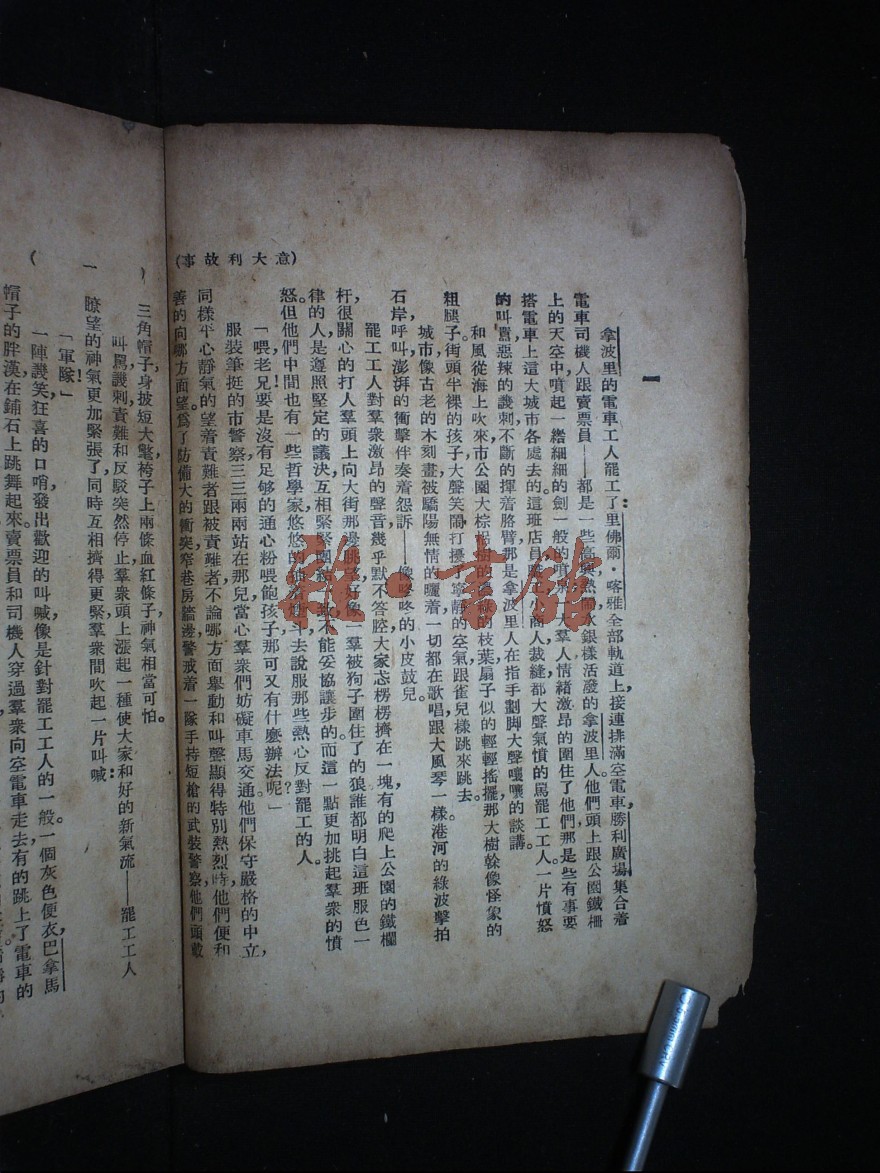 一
拿波里的電車工人罷工了：里佛爾·喀雅全部軌道上，接連排滿空電車，勝利廣場集合着
電車司機人跟賣票員——都是一些高興熱鬧水銀樣活發的拿波里人。他們頭上跟公園鐵柵
上的天空中，噴起一綹細細的劍一般的噴泉；大羣人情緒激昂的圍住了他們，那是些有事要
搭電車上這大城市各處去的。這班店員職工小商人裁縫都大聲氣憤的罵罷工工人。一片憤怒
的叫罵，惡辣的譏刺，不斷的揮着胳臂，那是拿波里人在指手劃脚大聲嚷嚷的談講。
和風從海上吹來，市公園大棕櫚樹的枝葉扇子似的輕輕搖擺，那大樹榦像怪象的
粗腿子。街頭半裸的孩子大聲笑鬧，打擾了寧靜的空氣，跟雀兒樣跳來跳去。
城市像古老的木刻畫，被驕陽無情的曬着，一切都在歌唱，跟大風琴一樣。港河的綠波擊拍
石岸，呼叫，澎湃的衝擊伴奏着怨訴——像咚咚的小皮鼓兒。
罷工工人對羣衆激昂的聲音，幾乎默不答腔，大家忐楞楞擠在一塊，有的爬上公園的鐵欄
杆，很關心的打人羣頭上向大街那邊眺望，好像一羣被狗子圍住了的狼。誰都明白這班服色一
律的人，是遵照堅定的議決，互相緊緊團結，不能妥協讓步的，而這一點，更加挑起羣衆的憤
怒。但他們中間也有一些哲學家，悠悠的，去說服那些熱心反對罷工的人。
「喂，老兄！要是沒有足够的通心粉喂飽孩子，那可又有什麽辦法呢？」
服裝筆挺的市警察，三三兩兩站在那兒，當心羣衆們妨礙車馬交通。他們保守嚴格的中立，
同樣平心靜氣的望着責難者跟被責難者，不論哪方面，舉動和叫聲顯得特別熱烈時，他們便和
善的向哪方面望。爲了防備大的衝突，窄巷房牆邊警戒着一隊手持短槍的武裝警察，他們頭戴
（意大利故事）
三角帽子，身披短大氅，袴子上兩條血紅條子，神氣相當可怕。
叫罵譏刺責難和反駁突然停止，羣衆頭上漲起一種使大家和好的新氣流——罷工工人
瞭望的神氣更加緊張了，同時互相擠得更緊，羣衆間吹起一片叫喊：
「軍隊！」
一陣譏笑狂喜的口哨，發出歡迎的叫喊，像是針對罷工工人的一般。一個灰色便衣，巴拿馬
帽子的胖漢在鋪石上跳舞起來。賣票員和司機人穿過羣衆向空電車走去，有的跳上了電車的